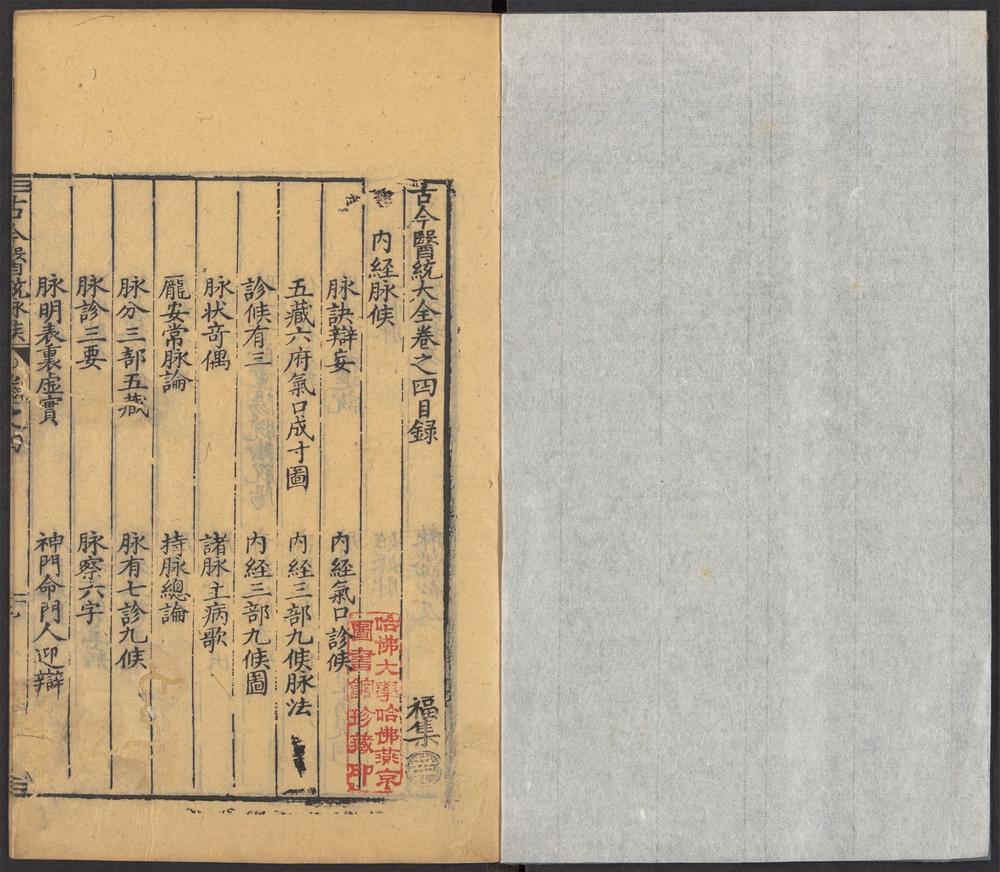 古今醫統大全卷之四目録
福集
内経脉候
脉訣辯妄
内経氣口診候
五藏六府氣口成寸圖
内経三部九候脉法
診候有三
内経三部九候圖
脉状竒偶
諸脉主病歌
龎安常脉論
持脉總論
脉分三部五藏
脉有七診九候
脉診三要
脉察六字
脉明表裏虛實
神門命門人迎辯
古今醫統脉候
哈佛大學哈佛燕京
圖書館珍藏印